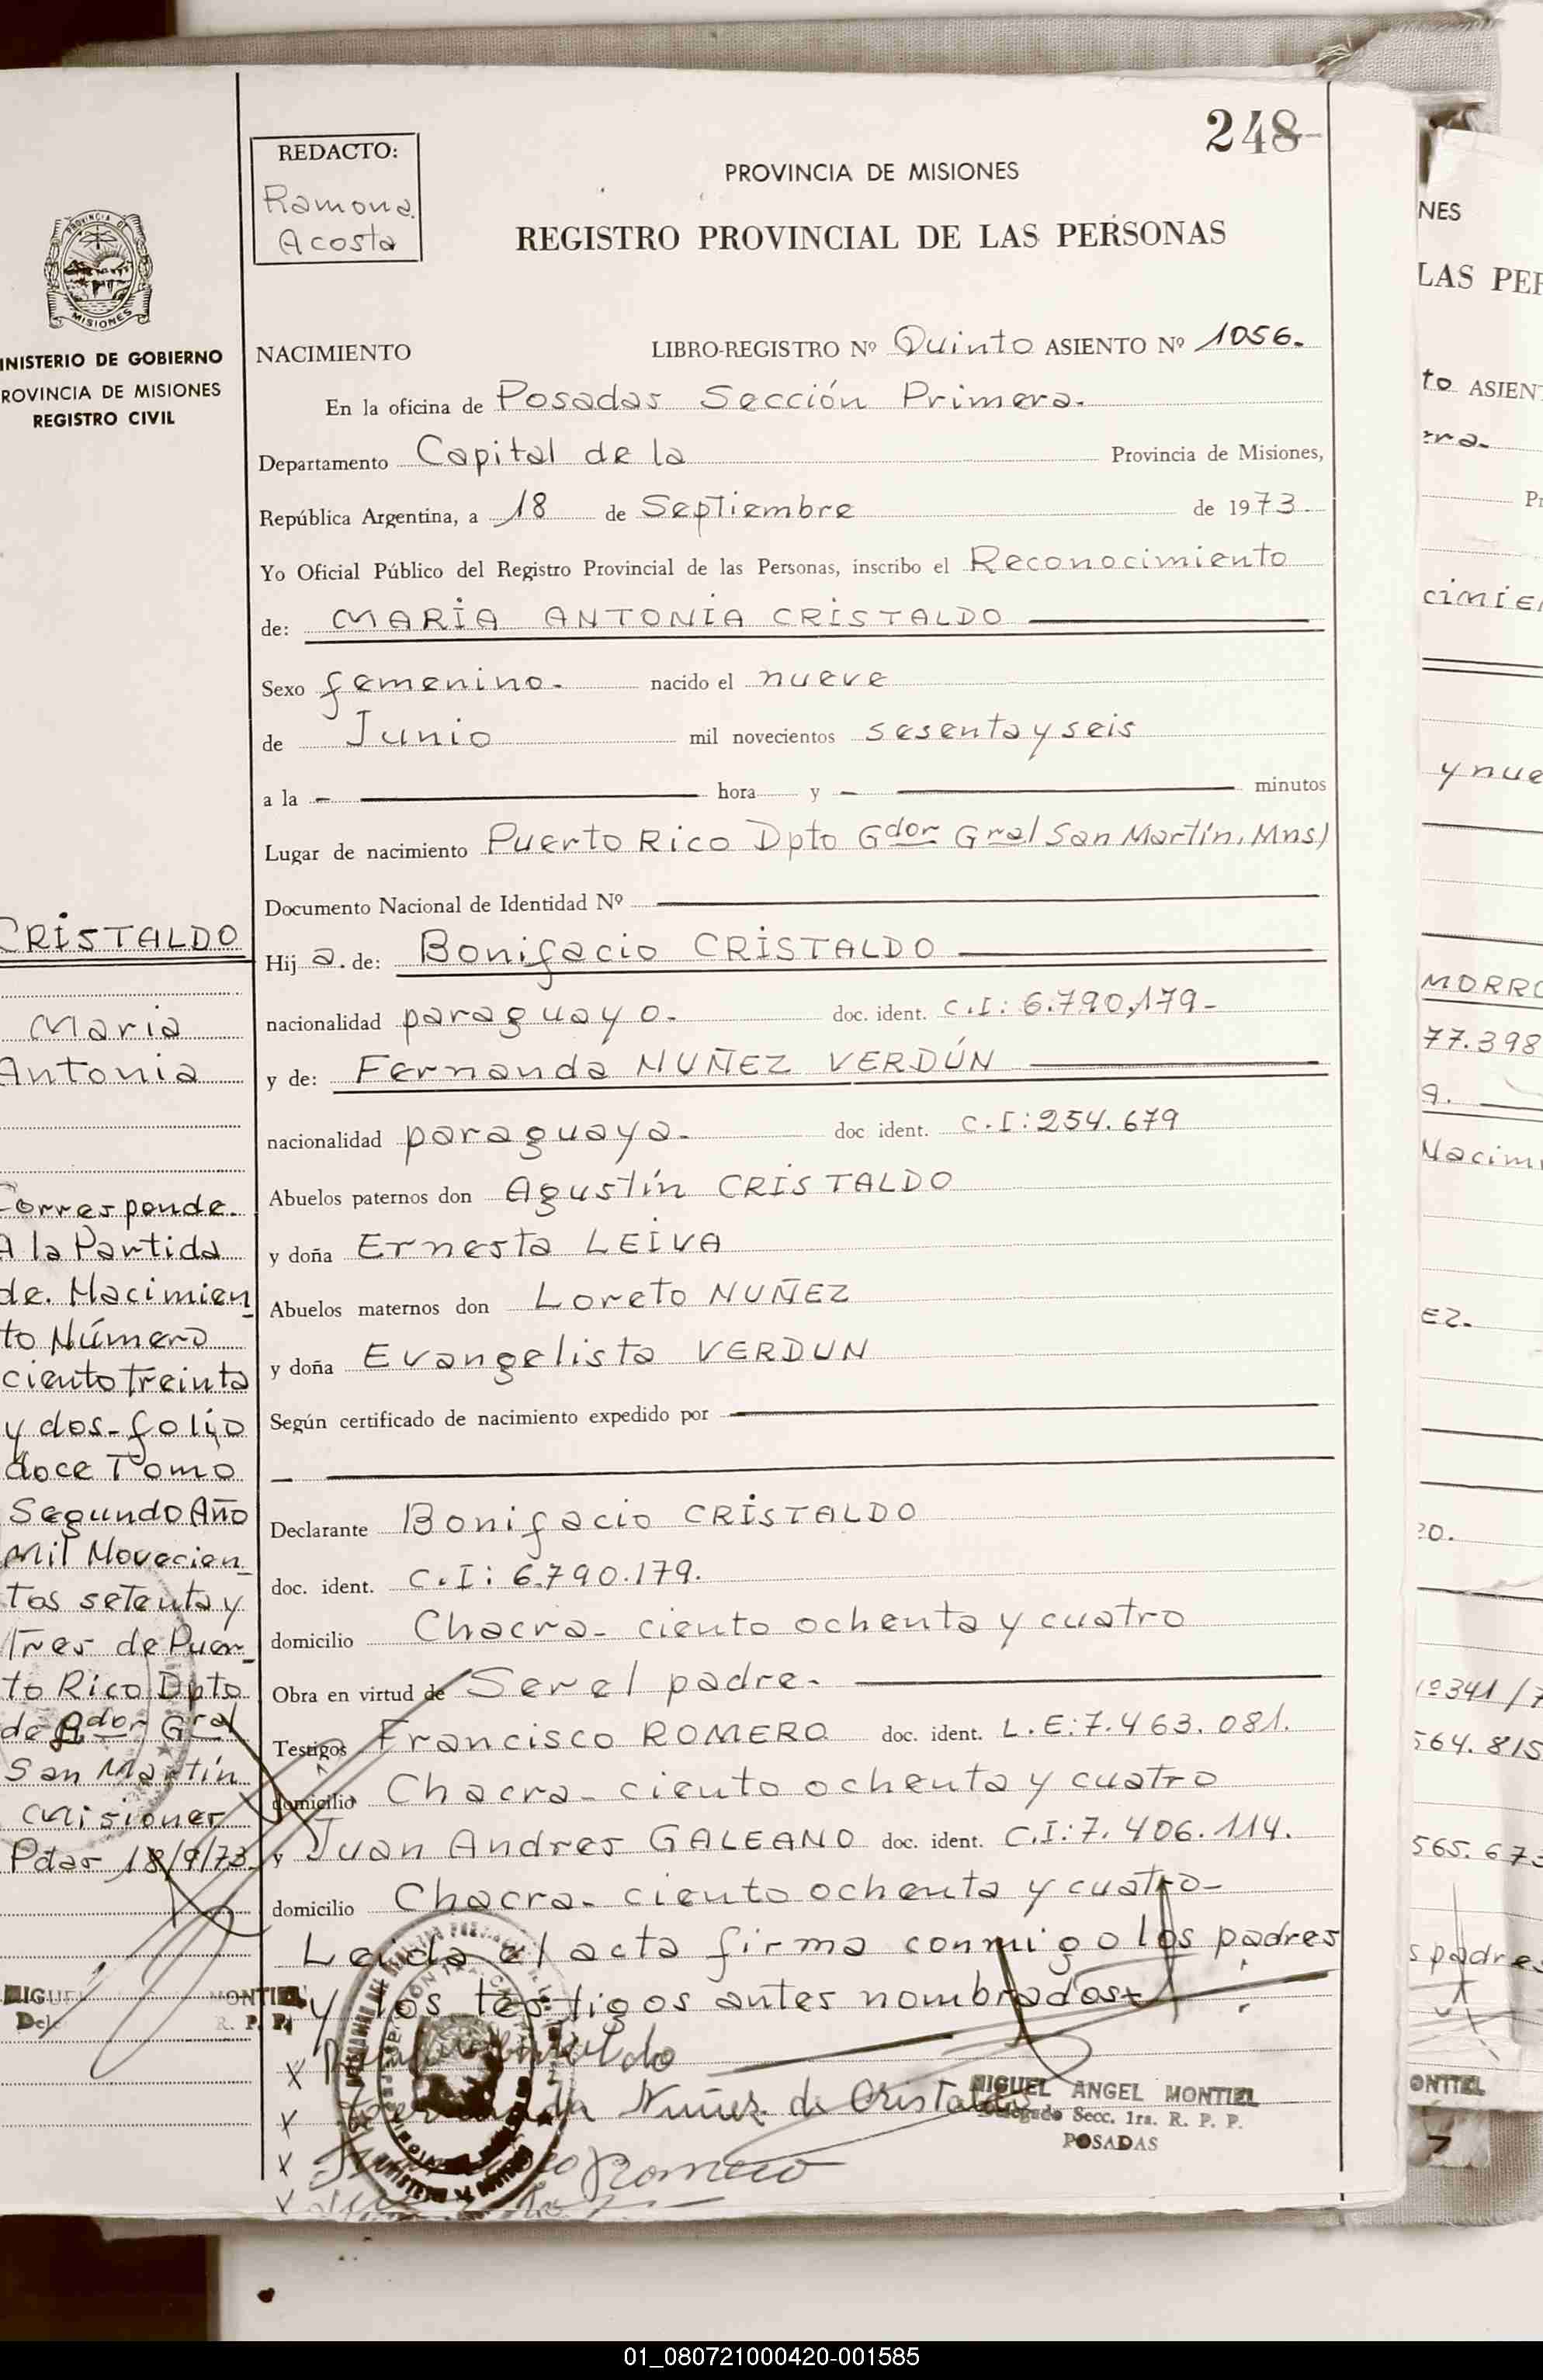 248
REDACTO:
Ramona
Acosta
PROVINCIA DE MISIONES
REGISTRO PROVINCIAL DE LAS PERSONAS
MISIONES
INISTERIO DE GOBIERNO
ROVINCIA DE MISIONES
REGISTRO CIVIL
NACIMIENTO LIBRO-REGISTRO Nº Quinto ASIENTO Nº 1056.
En la oficina de Posadas Sección Primera.
Departamento Capital de la Provincia de Misiones,
República Argentina, a 18 de Septiembre de 1973.
Yo Oficial Público del Registro Provincial de las Personas, inscribo el Reconocimiento
de: MARIA ANTONIA CRISTALDO
Sexo femenino. nacido el nueve
de Junio mil novecientos sesenta y seis
a la hora y minutos
Lugar de nacimiento Puerto Rico Dpto Gdor Gral San Martín, Mns)
Documento Nacional de Identidad Nº
Hij a. de: Bonifacio CRISTALDO
nacionalidad paraguayo. doc. ident. C.I: 6.790,179-
y de: Fernanda NUÑEZ VERDÚN
nacionalidad paraguaya. doc ident. C.I: 254.679
Abuelos paternos don Agustín CRISTALDO
y doña Ernesta LEIVA
Abuelos maternos don Loreto NUÑEZ
y doña Evangelista VERDUN
Según certificado de nacimiento expedido por
Declarante Bonifacio CRISTALDO
doc. ident. C.I: 6.790.179.
domicilio Chacra- ciento ochenta y cuatro
Obra en virtud de Ser el padre.
Testigos Francisco ROMERO doc. ident. L.E: 7.463.081.
domicilio Chacra- ciento ochenta y cuatro
y Juan Andres GALEANO doc. ident. C.I: 7.406.114.
domicilio Chacra- ciento ochenta y cuatro-
Leida el acta firma conmigo los padres
y los testigos antes nombrados
Nuñez de Cristaldo
Romero
MIGUEL ANGEL MONTIEL
Delegado Secc. 1ra. R. P. P.
POSADAS
CRISTALDO
Maria
Antonia
Corresponde.
A la Partida
de. Nacimien
to Número
ciento treinta
y dos-folio
doce Tomo
Segundo Año
Mil Novecien
tos setenta y
Tres de Puer
to Rico Dpto
de Gdor Gral
San Martín
Misiones
Pdas 18/9/73
MIGUEL MONTIEL
R. P. P.
NES
LAS PER
to ASIENT
era-
cimie
y nue
MORRO
77.398
a.
Nacimi
EZ.
nº341/7
564.815
565.673
s padres
ONTIEL
01_080721000420-001585